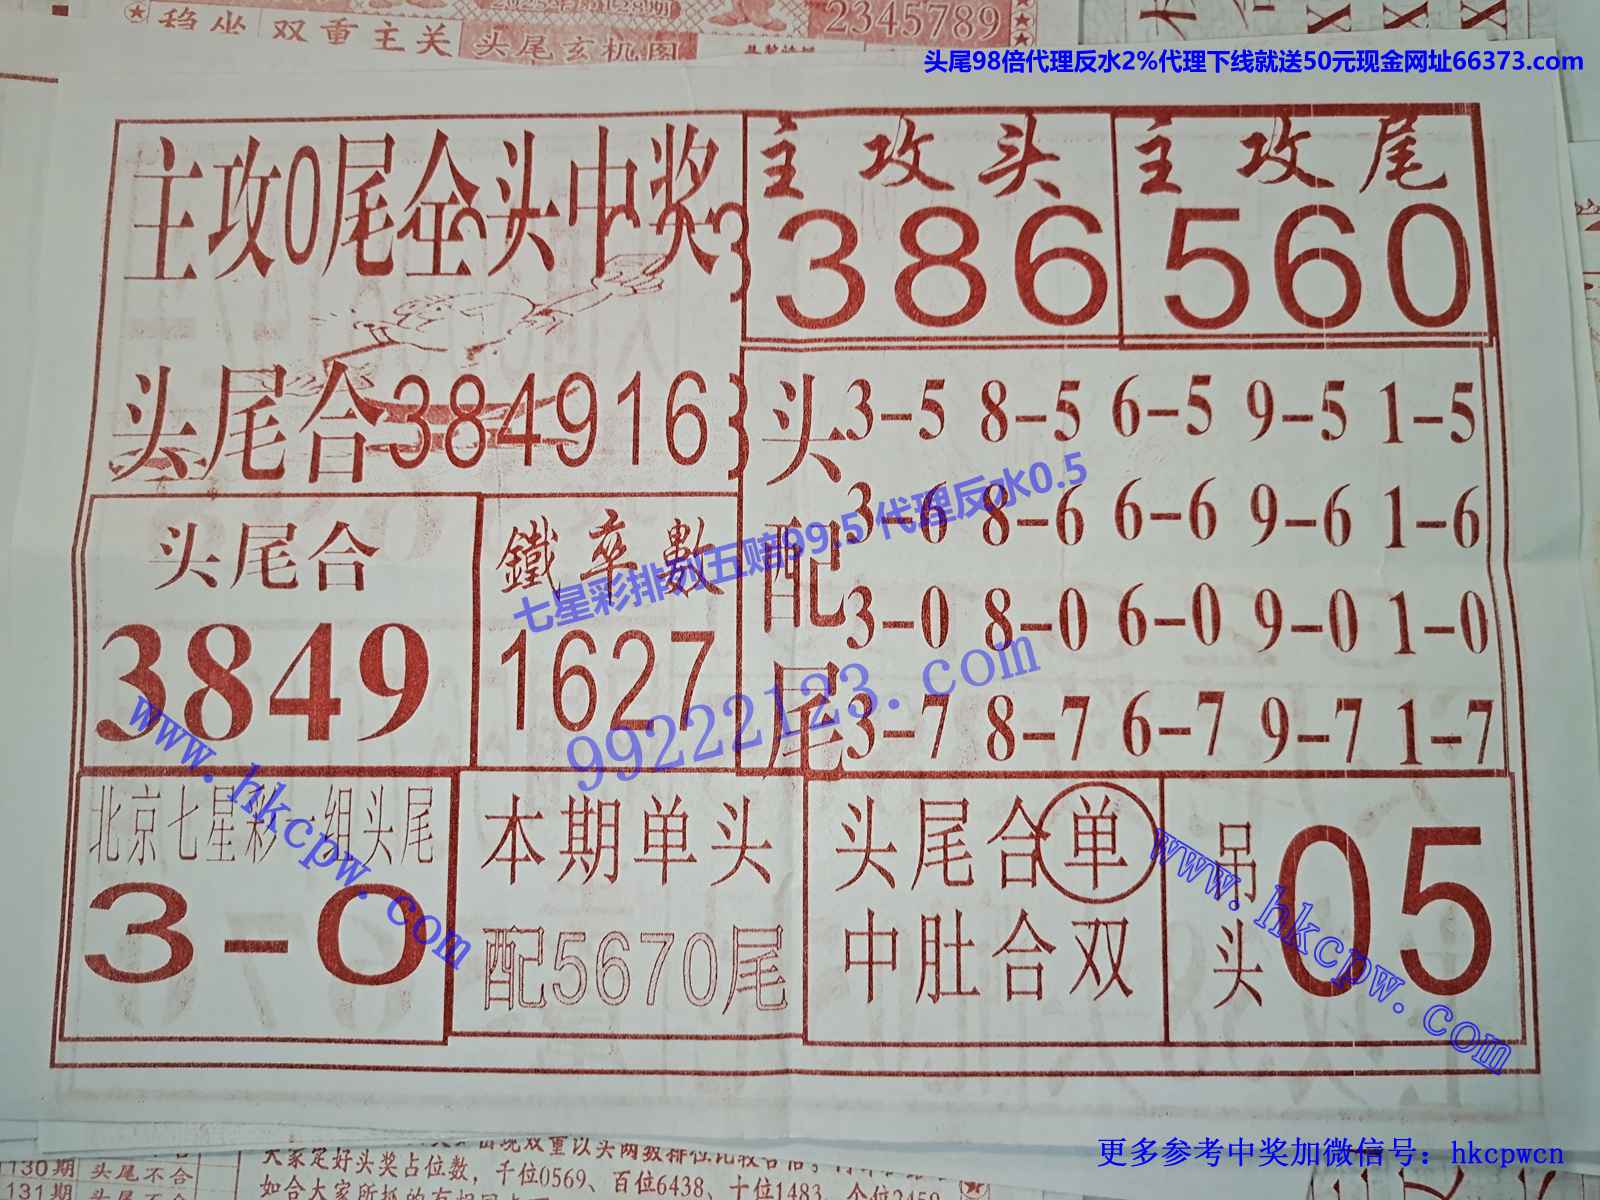 2345789
稳坐 双重主关 头尾玄机图
头尾98倍代理反水2%代理下线就送50元现金网址66373.com
主攻0尾全头中奖
主攻头
386
主攻尾
560
头尾合384916
头配尾
3-5 8-5 6-5 9-5 1-5
3-6 8-6 6-6 9-6 1-6
3-0 8-0 6-0 9-0 1-0
3-7 8-7 6-7 9-7 1-7
头尾合
3849
鐵率數
1627
七星彩排列五赔99.5 代理反水0.5
99222123.com
www.hkcpw.com
北京七星彩一组头尾
3-0
本期单头
配5670尾
头尾合单
中肚合双
吊头
05
www.hkcpw.com
更多参考中奖加微信号：hkcpwcn
130期 头尾不合
131期 头尾不合
大家定好头奖占位数，千位0569、百位6438、十位1483、个位2459